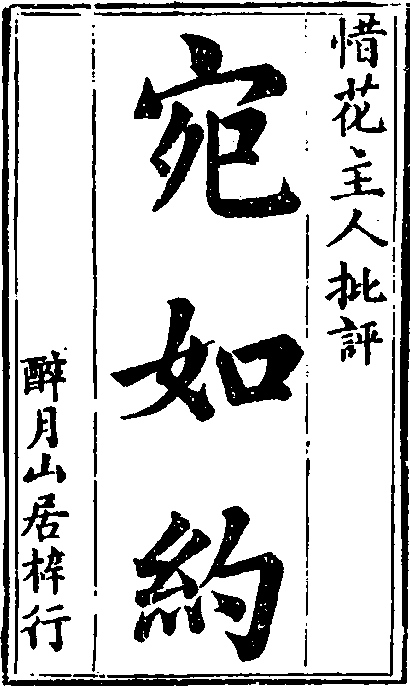 惜花主人批評
宛如約
醉月山居梓行